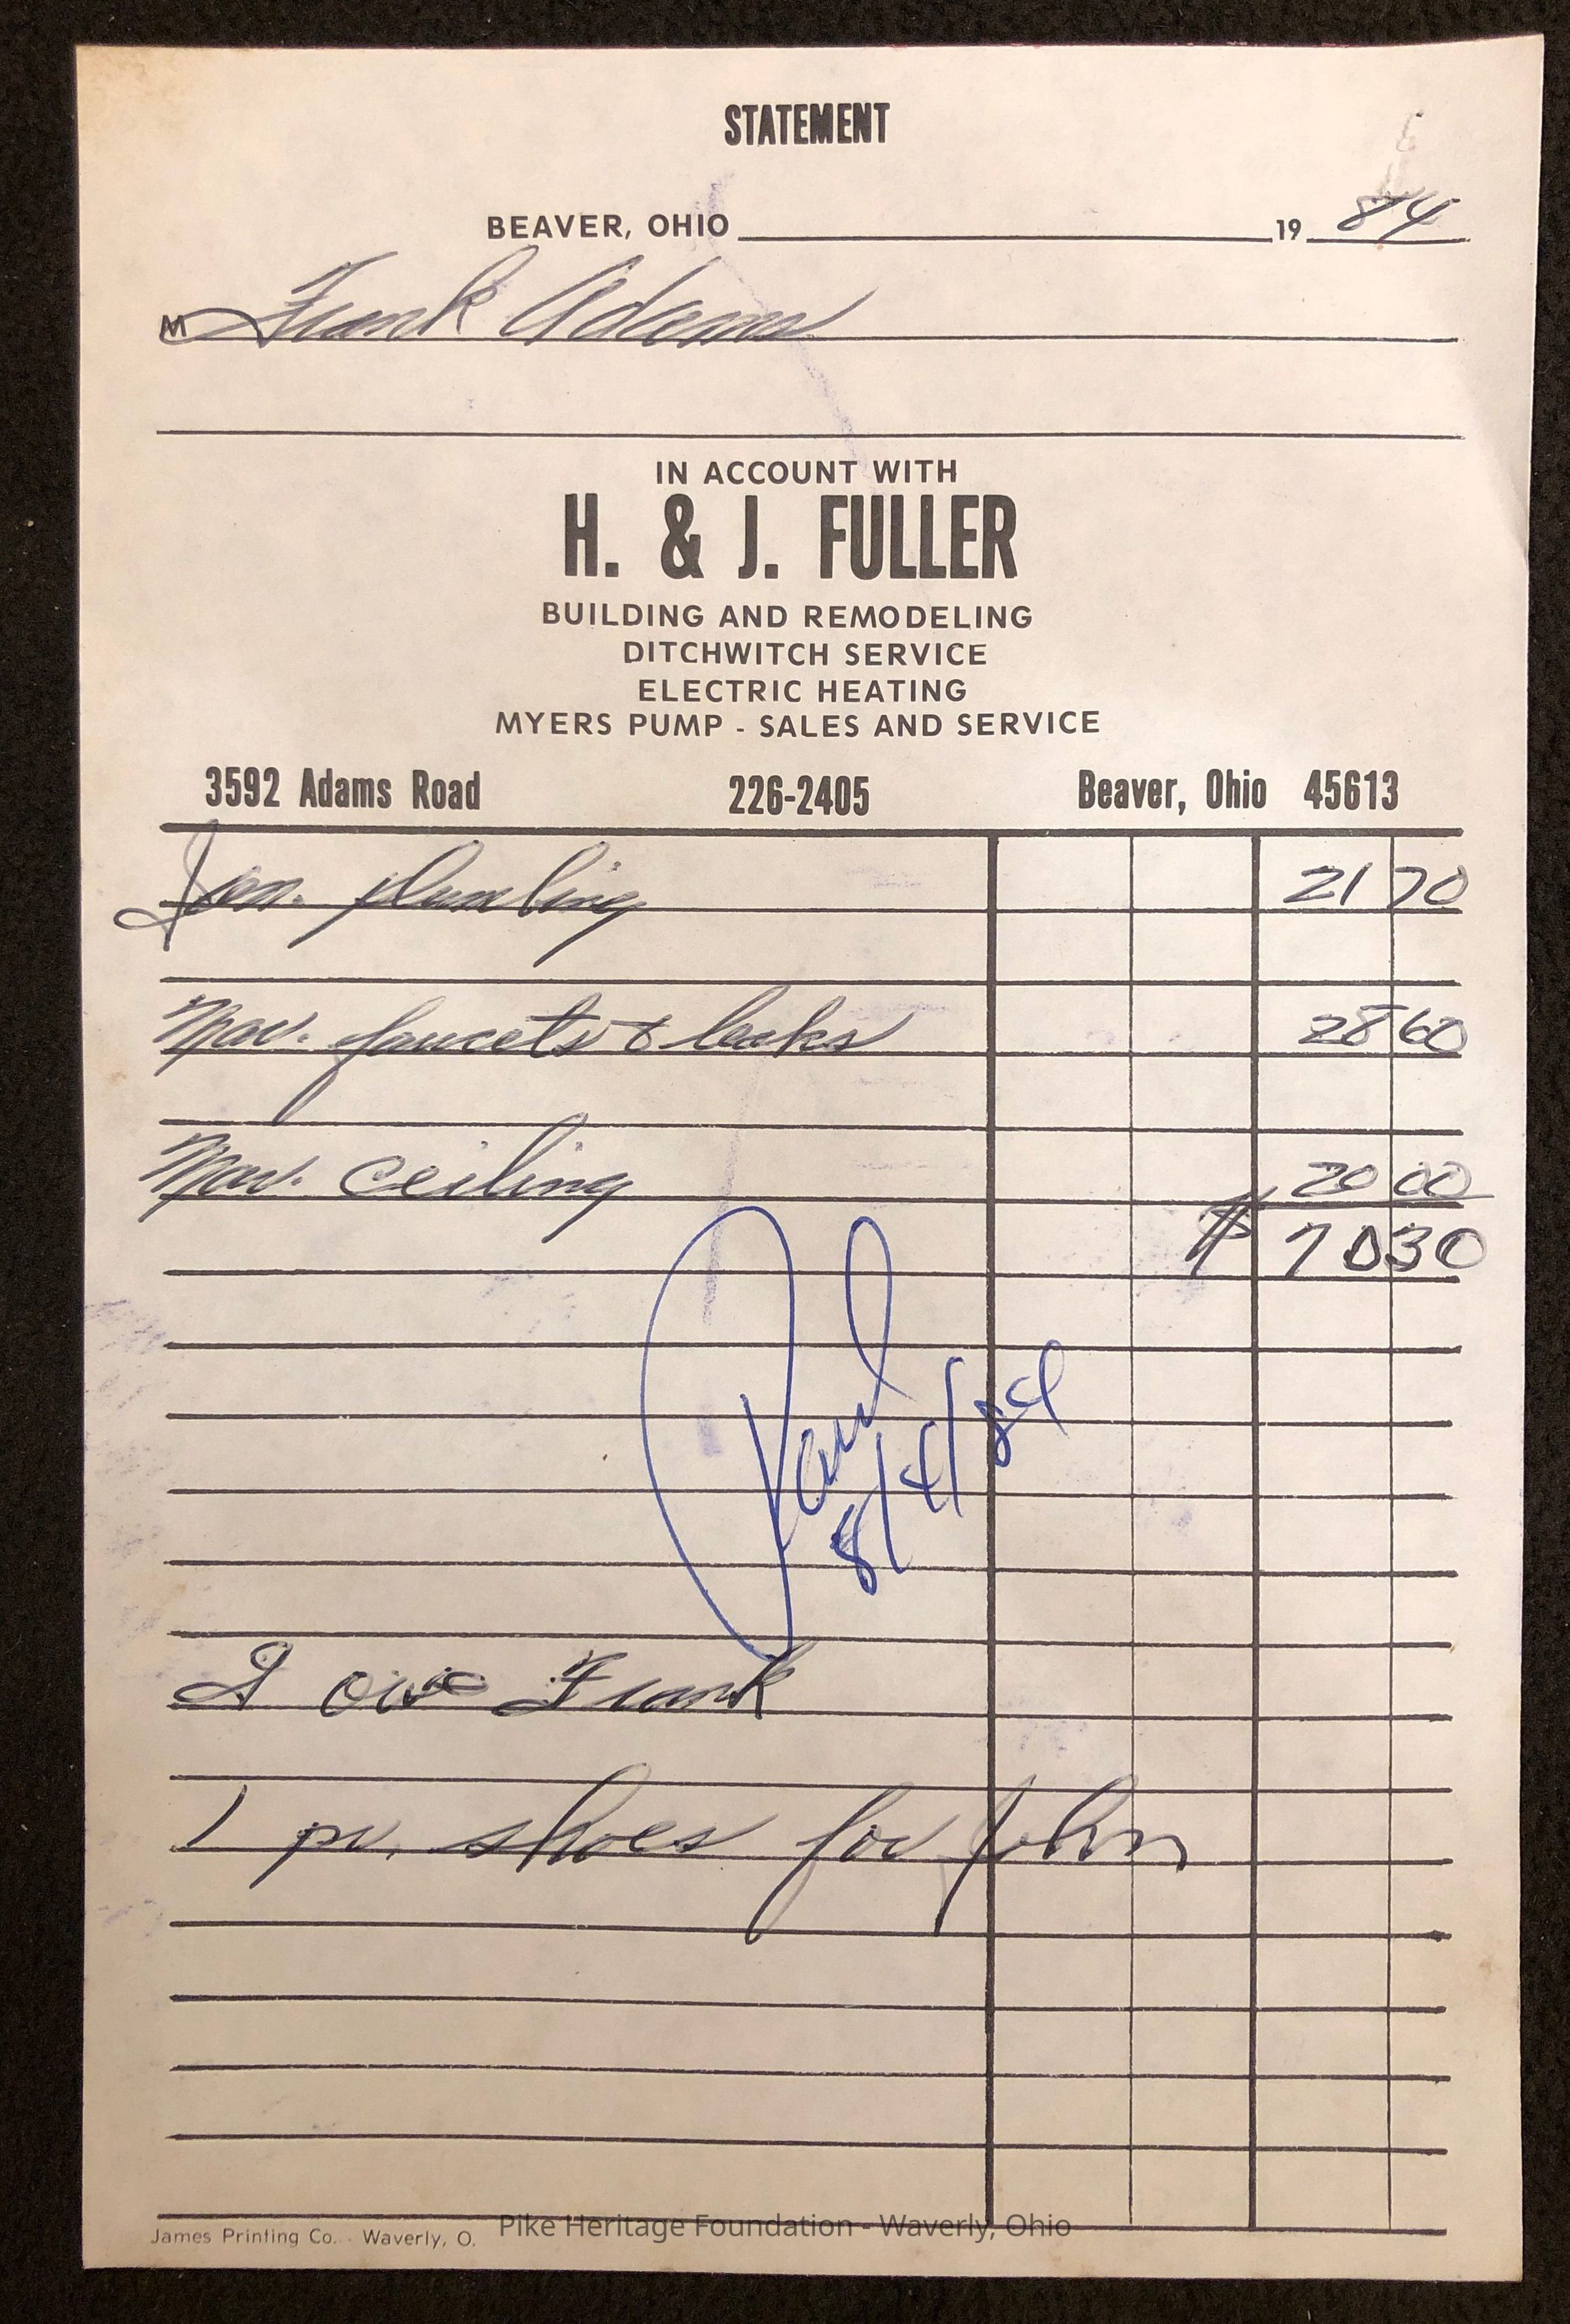 STATEMENT
BEAVER, OHIO 19 84
M Frank Adams
IN ACCOUNT WITH
H. & J. FULLER
BUILDING AND REMODELING
DITCHWITCH SERVICE
ELECTRIC HEATING
MYERS PUMP - SALES AND SERVICE
3592 Adams Road 226-2405 Beaver, Ohio 45613
Jan. plumbing 21 70
Mar. faucets & leaks 28 60
Mar. ceiling 20 00
$ 70 30
Paid
8/4/84
I owe Frank
1 pr. shoes for John
James Printing Co. - Waverly, O.
Pike Heritage Foundation - Waverly, Ohio